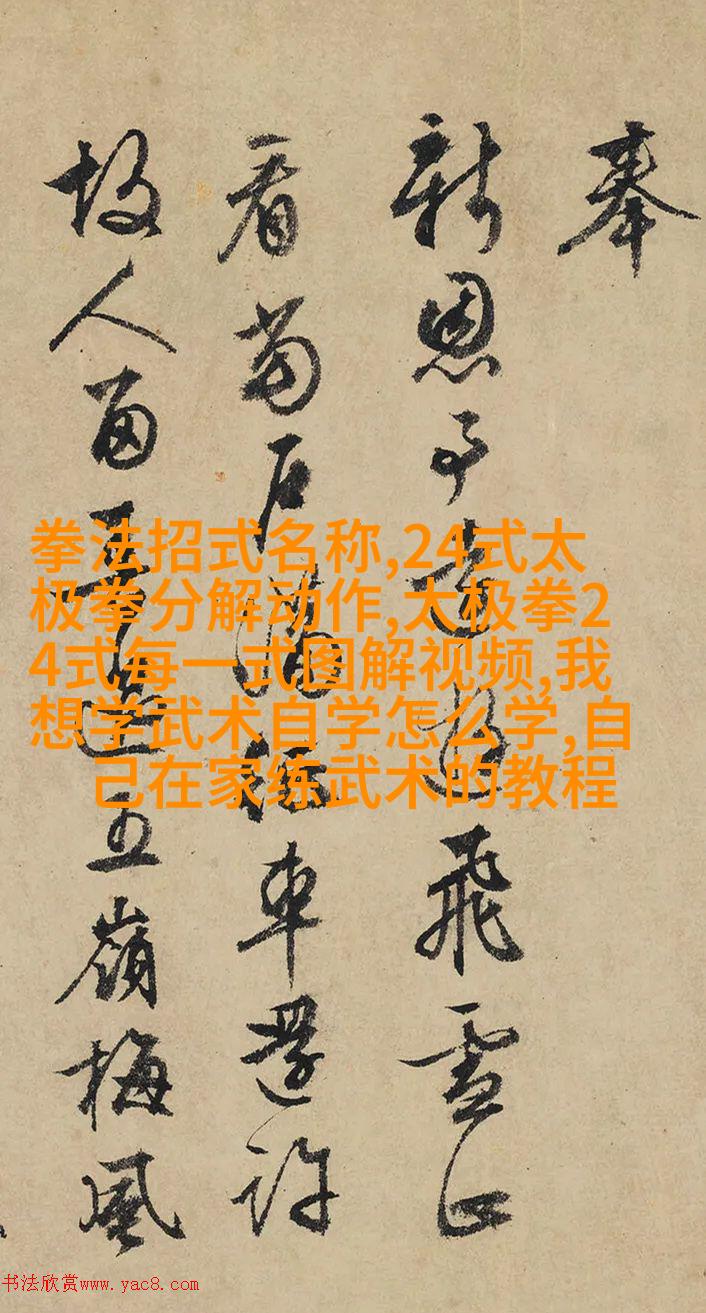 奉
新恩予遊飛雪正
看當戶滿車還許
故人留五嶺梅風
拳法招式名称,24式太
极拳分解动作,太极拳2
4式每一式图解视频,我
想学武术自学怎么学,自
己在家练武术的教程
书法欣赏www.yac8.com